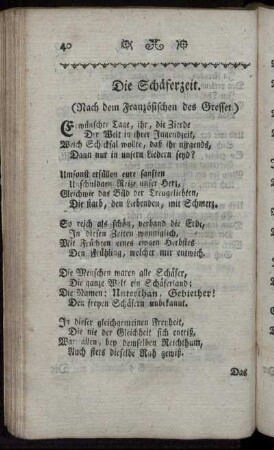 40
Die Schäferzeit.
(Nach dem Französischen des Gresset.)
Erwünschter Tage, ihr, die Zierde
Der Welt in ihrer Jugendzeit,
Welch Schicksal wollte, daß ihr nirgends,
Dann nur in unsern Liedern seyd?
Umsonst erfüllen eure sanften
Unschuldgen Reize unser Herz,
Gleichwie das Bild der Treugeliebten,
Die starb, den Liebenden, mit Schmerz.
So reich als schön, verband die Erde,
In diesen Zeiten wonniglich,
Mit Früchten eines ewgen Herbstes
Den Frühling, welcher nie entwich.
Die Menschen waren alle Schäfer,
Die ganze Welt ein Schäferland;
Die Namen: Unterthan, Gebiether!
Den freyen Schäfern unbekannt.
In dieser gleichgemeinen Freyheit,
Die nie der Gleichheit sich entriß,
War allen, bey demselben Reichthum,
Auch stets dieselbe Ruh gewiß.
Das